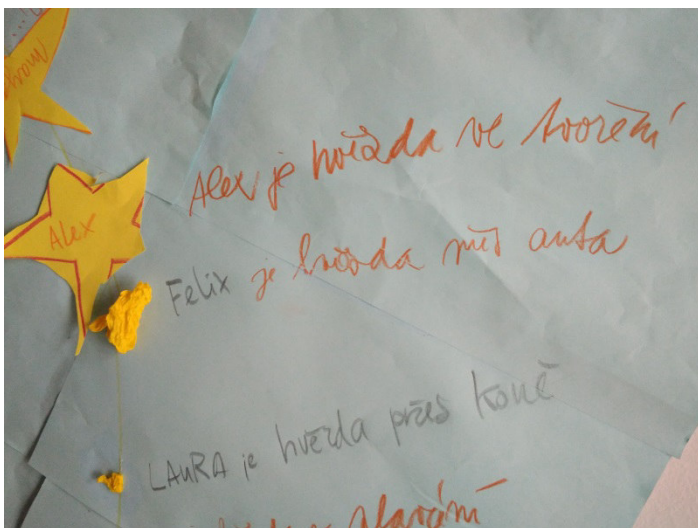 Alex
Alex je hvězda ve tvoření
Felix je hvězda přes auta
LAURA je hvězda přes koně
plavání